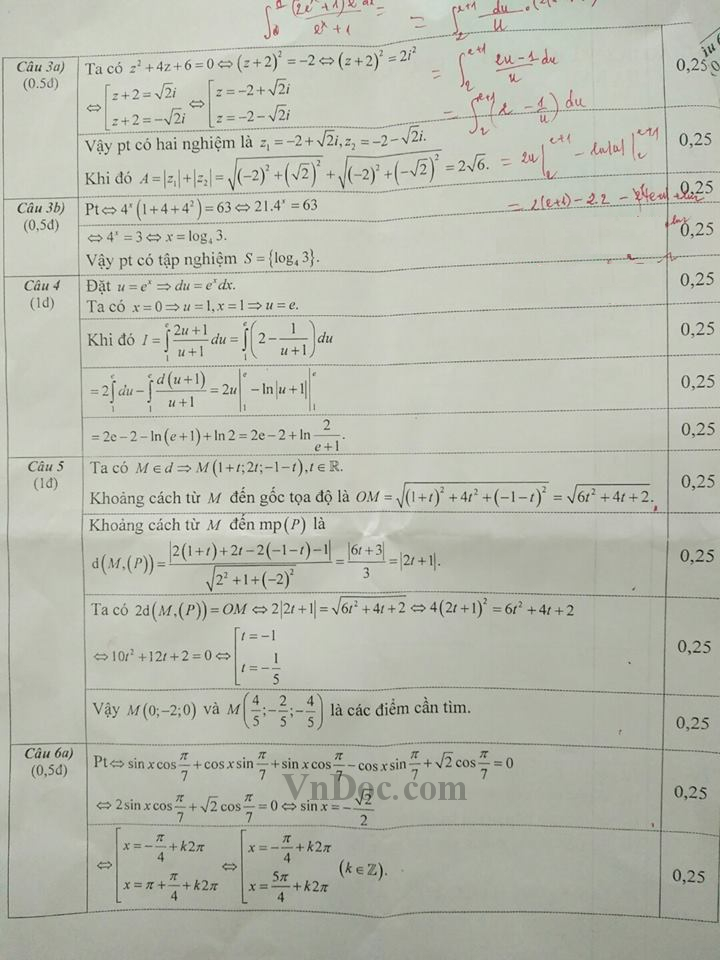 ∫₀ (2eˣ+1)eˣdx / eˣ+1 = ∫₂^{e+1} du/u
Câu 3a) (0.5đ) Ta có z² + 4z + 6 = 0 ⇔ (z+2)² = −2 ⇔ (z+2)² = 2i² 0,25
= ∫₂^{e+1} (2u−1)/u du
⇔ [z+2 = √2i; z+2 = −√2i ⇔ [z = −2+√2i; z = −2−√2i
= ∫₂^{e+1} (2 − 1/u) du
Vậy pt có hai nghiệm là z₁ = −2+√2i, z₂ = −2−√2i. 0,25
Khi đó A = |z₁|+|z₂| = √((−2)²+(√2)²) + √((−2)²+(−√2)²) = 2√6.
= 2u|₂^{e+1} − ln|u||₂^{e+1}
Câu 3b) (0,5đ) Pt ⇔ 4ˣ(1+4+4²) = 63 ⇔ 21.4ˣ = 63 0,25
= 2(e+1) − 2.2 −
⇔ 4ˣ = 3 ⇔ x = log₄ 3. 0,25
Vậy pt có tập nghiệm S = {log₄ 3}.
Câu 4 (1đ) Đặt u = eˣ ⇒ du = eˣdx. 0,25
Ta có x = 0 ⇒ u = 1, x = 1 ⇒ u = e.
Khi đó I = ∫₁ᵉ (2u+1)/(u+1) du = ∫₁ᵉ (2 − 1/(u+1)) du 0,25
= 2∫₁ᵉ du − ∫₁ᵉ d(u+1)/(u+1) = 2u|₁ᵉ − ln|u+1||₁ᵉ 0,25
= 2e − 2 − ln(e+1) + ln 2 = 2e − 2 + ln 2/(e+1). 0,25
Câu 5 (1đ) Ta có M ∈ d ⇒ M(1+t; 2t; −1−t), t ∈ ℝ. 0,25
Khoảng cách từ M đến gốc tọa độ là OM = √((1+t)² + 4t² + (−1−t)²) = √(6t²+4t+2).
Khoảng cách từ M đến mp(P) là
d(M,(P)) = |2(1+t)+2t−2(−1−t)−1| / √(2²+1+(−2)²) = |6t+3|/3 = |2t+1|. 0,25
Ta có 2d(M,(P)) = OM ⇔ 2|2t+1| = √(6t²+4t+2) ⇔ 4(2t+1)² = 6t²+4t+2
⇔ 10t² + 12t + 2 = 0 ⇔ [t = −1; t = −1/5 0,25
Vậy M(0;−2;0) và M(4/5; −2/5; −4/5) là các điểm cần tìm. 0,25
Câu 6a) (0,5đ) Pt ⇔ sin x cos π/7 + cos x sin π/7 + sin x cos π/7 − cos x sin π/7 + √2 cos π/7 = 0
VnDoc.com
⇔ 2 sin x cos π/7 + √2 cos π/7 = 0 ⇔ sin x = −√2/2 0,25
⇔ [x = −π/4 + k2π; x = π + π/4 + k2π ⇔ [x = −π/4 + k2π; x = 5π/4 + k2π (k ∈ ℤ). 0,25